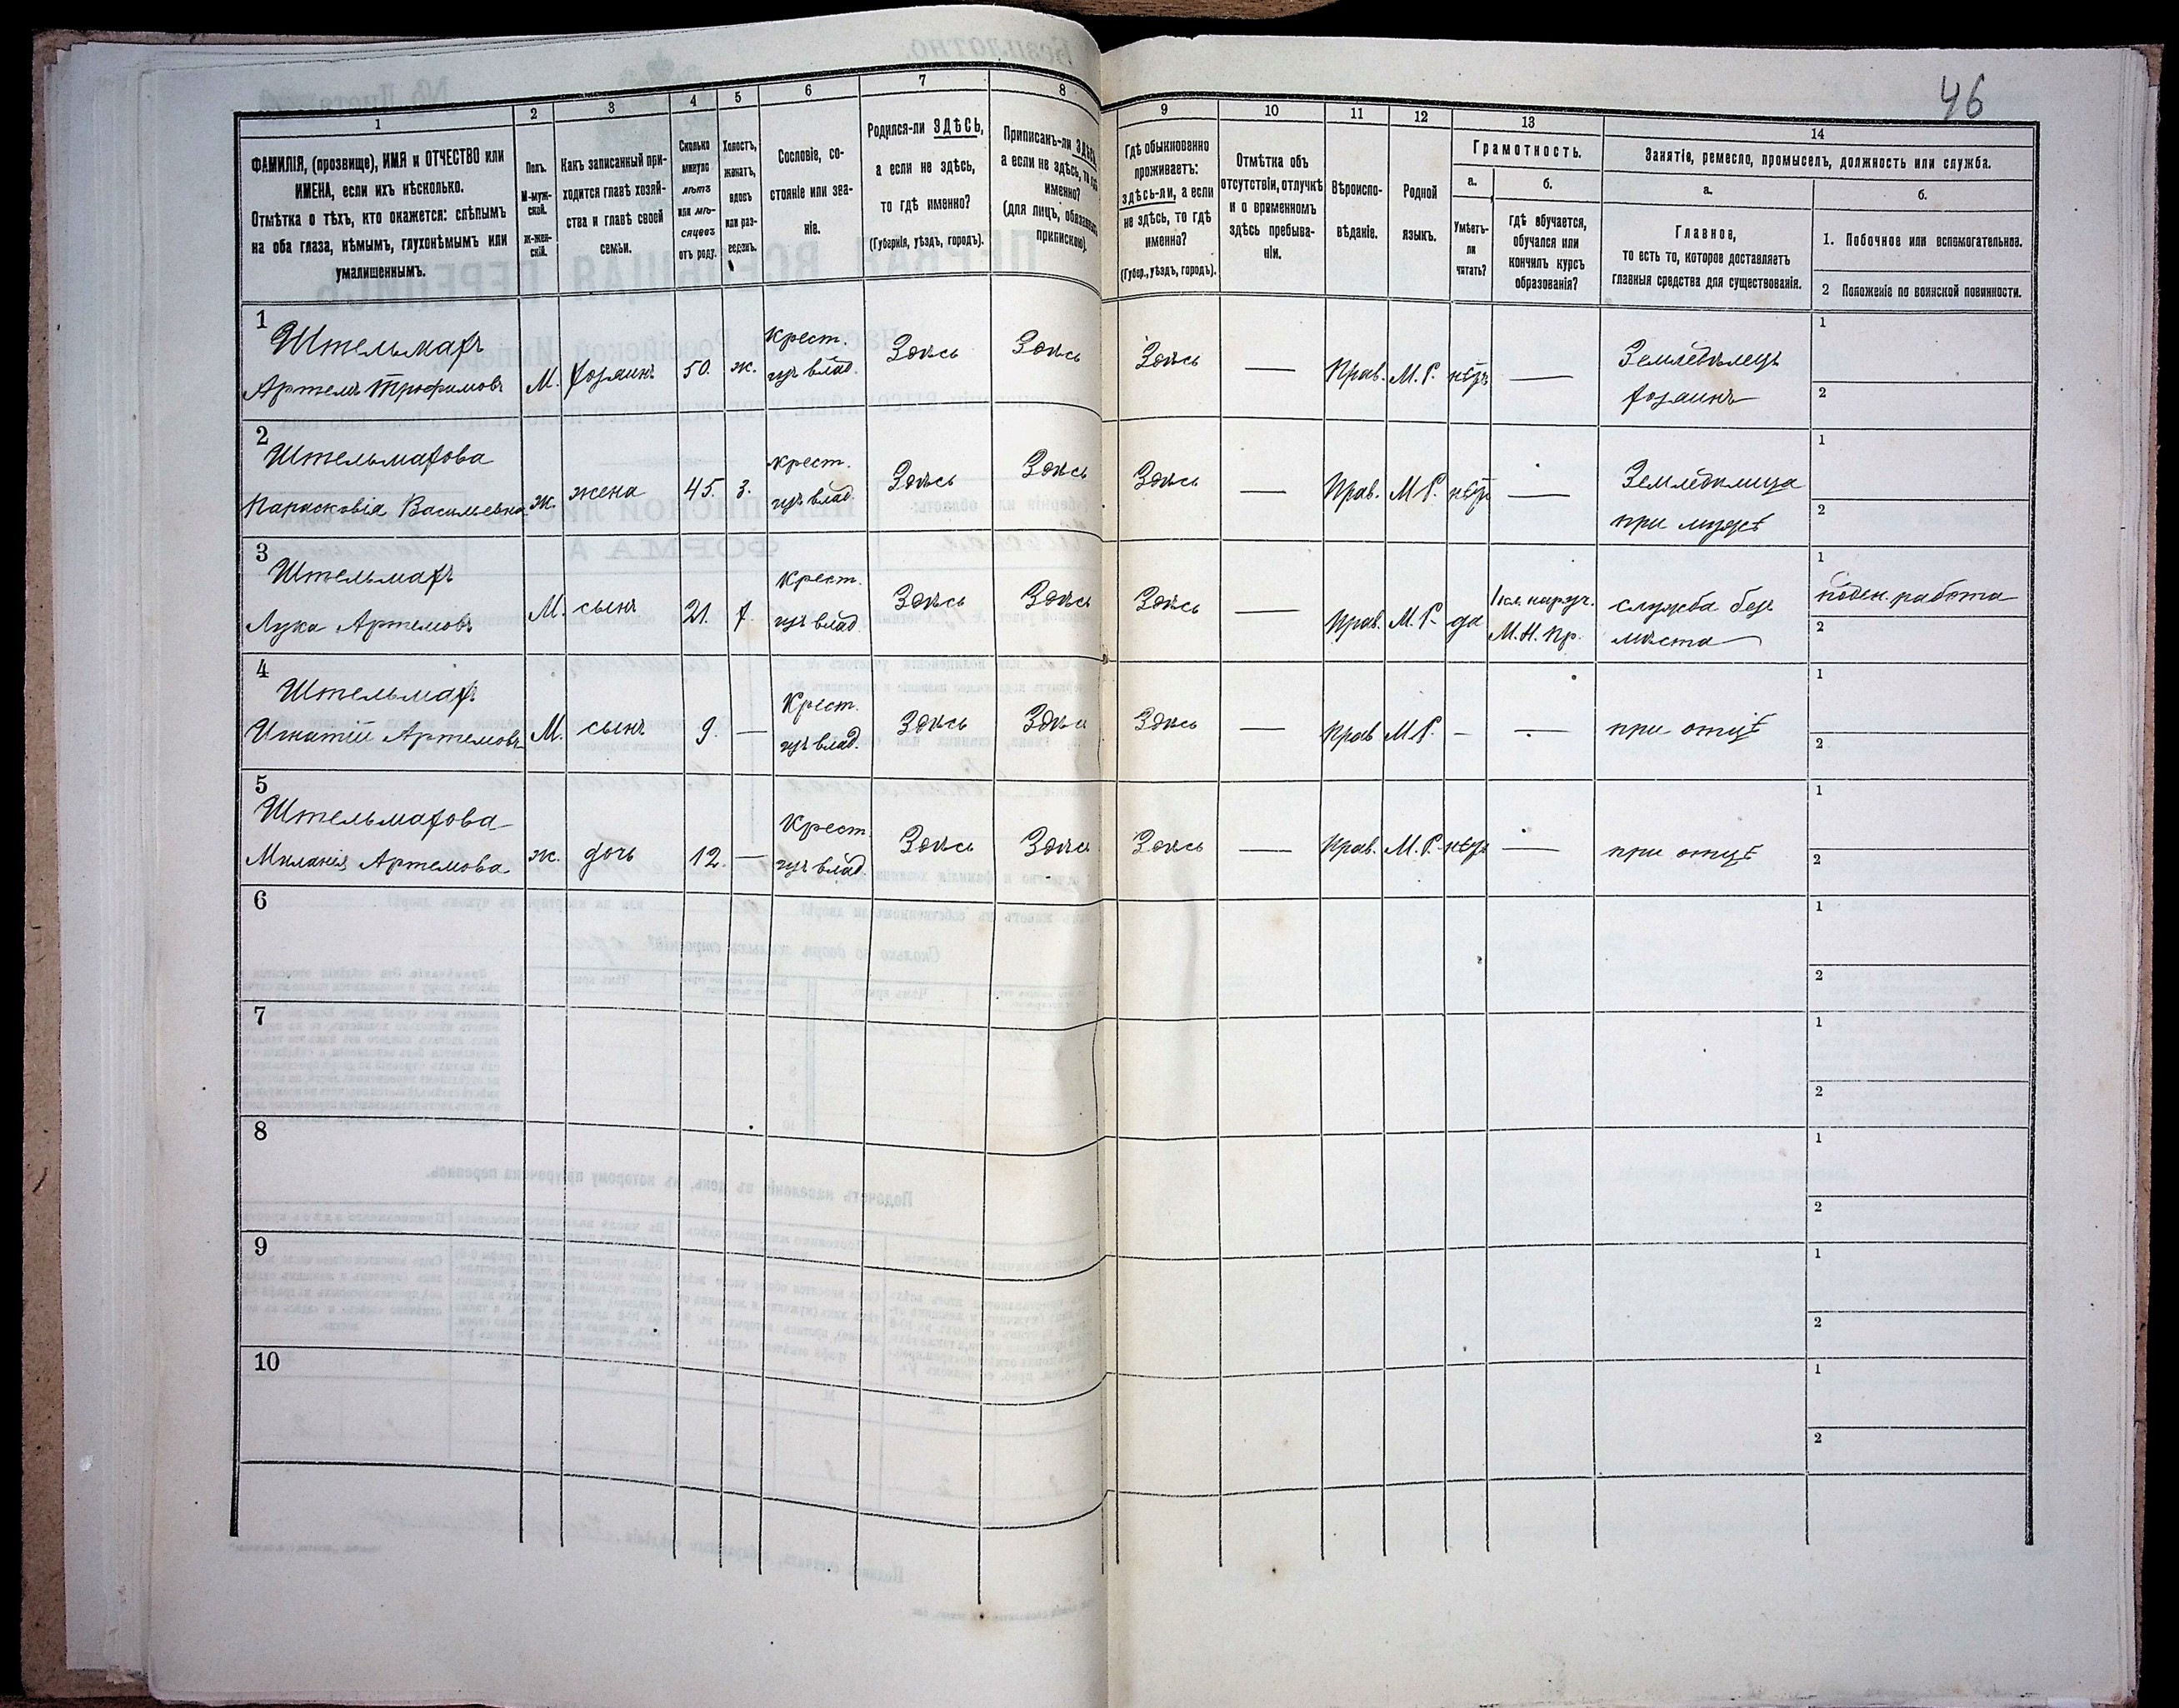 46
1
2
3
4
5
6
7
8
9
10
11
12
13
14
ФАМИЛІЯ, (прозвище), ИМЯ и ОТЧЕСТВО или
ИМЕНА, если ихъ нѣсколько.
Отмѣтка о тѣхъ, кто окажется: слѣпымъ
на оба глаза, нѣмымъ, глухонѣмымъ или
умалишеннымъ.
Полъ.
М-муж-
ской.
ж-жен-
скій.
Какъ записанный при-
ходится главѣ хозяй-
ства и главѣ своей
семьи.
Сколько
минуло
лѣтъ
или мѣ-
сяцевъ
отъ роду.
Холостъ,
женатъ,
вдовъ
или раз-
веденъ.
Сословіе, со-
стояніе или зва-
ніе.
Родился-ли ЗДѢСЬ,
а если не здѣсь,
то гдѣ именно?
(Губернія, уѣздъ, городъ).
Приписанъ-ли ЗДѢСЬ,
а если не здѣсь, то гдѣ
именно?
(для лицъ, обязанныхъ
припискою).
Гдѣ обыкновенно
проживаетъ:
здѣсь-ли, а если
не здѣсь, то гдѣ
именно?
(Губер., уѣздъ, городъ).
Отмѣтка объ
отсутствіи, отлучкѣ
и о временномъ
здѣсь пребыва-
ніи.
Вѣроиспо-
вѣданіе.
Родной
языкъ.
Грамотность.
а.
Умѣетъ-
ли
читать?
б.
гдѣ обучается,
обучался или
кончилъ курсъ
образованія?
Занятіе, ремесло, промыселъ, должность или служба.
а.
Главное,
то есть то, которое доставляетъ
главныя средства для существованія.
б.
1. Побочное или вспомогательное.
2 Положеніе по воинской повинности.
1
Штельмахъ
Артемъ Трофимовъ М. хозяинъ 50. ж. Крест. изъ влад. Здѣсь Здѣсь Здѣсь — Прав. М.Р. нѣтъ — Земледѣлецъ хозяинъ
1
2
2
Штельмахова
Парасковія Васильевна ж. жена 45. з. крест. изъ влад. Здѣсь Здѣсь Здѣсь — Прав. М.Р. нѣтъ — Земледѣлица при мужѣ
1
2
3
Штельмахъ
Лука Артемовъ М. сынъ 21. х. Крест. изъ влад. Здѣсь Здѣсь Здѣсь — Прав. М.Р. да М.Н.Пр. служба безъ мѣста
1 поден. работа
2
4
Штельмахъ
Игнатій Артемовъ М. сынъ 9. — Крест. изъ влад. Здѣсь Здѣсь Здѣсь — Прав М.Р. — — при отцѣ
1
2
5
Штельмахова
Миланія Артемова ж. дочь 12. — Крест. изъ влад. Здѣсь Здѣсь Здѣсь — Прав. М.Р. нѣтъ — при отцѣ
1
2
6
1
2
7
1
2
8
1
2
9
1
2
10
1
2